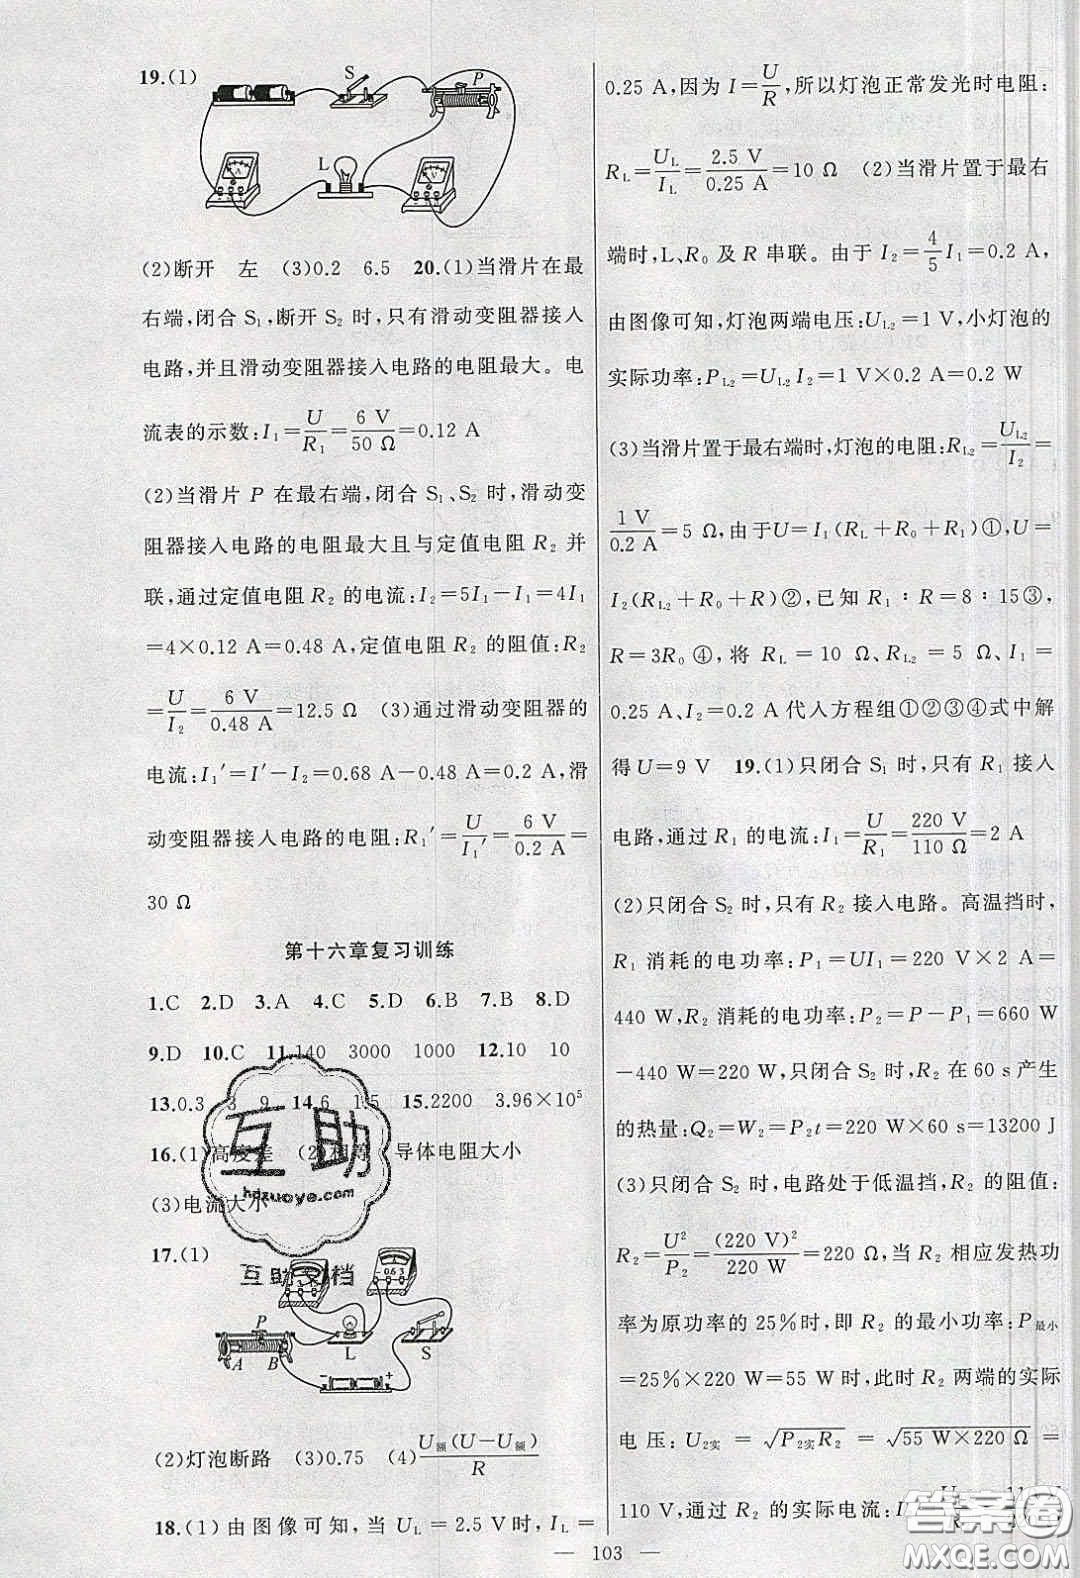 19.(1)
S
P
L
A
V
(2)断开 左 (3)0.2 6.5 20.(1)当滑片在最
右端,闭合 S₁,断开 S₂ 时,只有滑动变阻器接入
电路,并且滑动变阻器接入电路的电阻最大。电
流表的示数:I₁=U/R₁=6 V/50 Ω=0.12 A
(2)当滑片 P 在最右端,闭合 S₁、S₂ 时,滑动变
阻器接入电路的电阻最大且与定值电阻 R₂ 并
联,通过定值电阻 R₂ 的电流:I₂=5I₁-I₁=4I₁
=4×0.12 A=0.48 A,定值电阻 R₂ 的阻值:R₂
=U/I₂=6 V/0.48 A=12.5 Ω (3)通过滑动变阻器的
电流:I₁′=I′-I₂=0.68 A-0.48 A=0.2 A,滑
动变阻器接入电路的电阻:R₁′=U/I₁′=6 V/0.2 A=
30 Ω
第十六章复习训练
1.C 2.D 3.A 4.C 5.D 6.B 7.B 8.D
9.D 10.C 11.140 3000 1000 12.10 10
13.0.3 3 9 14.6 1.5 15.2200 3.96×10⁵
16.(1)高度差 (2)相等 导体电阻大小
(3)电流大小
互助
hdzuoye.com
互助文档
17.(1)
0.6 3
P
A B
L
S
- +
(2)灯泡断路 (3)0.75 (4)U额(U-U额)/R
18.(1)由图像可知,当 U_L=2.5 V时,I_L=
0.25 A,因为 I=U/R,所以灯泡正常发光时电阻:
R_L=U_L/I_L=2.5 V/0.25 A=10 Ω (2)当滑片置于最右
端时,L、R₀ 及 R 串联。由于 I₂=4/5 I₁=0.2 A,
由图像可知,灯泡两端电压:U_L2=1 V,小灯泡的
实际功率:P_L2=U_L2 I₂=1 V×0.2 A=0.2 W
(3)当滑片置于最右端时,灯泡的电阻:R_L2=U_L2/I₂=
1 V/0.2 A=5 Ω,由于U=I₁(R_L+R₀+R₁)①,U=
I₂(R_L2+R₀+R)②,已知 R₁∶R=8∶15③,
R=3R₀ ④,将 R_L=10 Ω、R_L2=5 Ω、I₁=
0.25 A、I₂=0.2 A代入方程组①②③④式中解
得U=9 V 19.(1)只闭合 S₁ 时,只有 R₁ 接入
电路,通过 R₁ 的电流:I₁=U/R₁=220 V/110 Ω=2 A
(2)只闭合 S₂ 时,只有 R₂ 接入电路。高温挡时,
R₁ 消耗的电功率:P₁=UI₁=220 V×2 A=
440 W,R₂ 消耗的电功率:P₂=P-P₁=660 W
-440 W=220 W,只闭合 S₂ 时,R₂ 在 60 s产生
的热量:Q₂=W₂=P₂t=220 W×60 s=13200 J
(3)只闭合 S₂ 时,电路处于低温挡,R₂ 的阻值:
R₂=U²/P₂=(220 V)²/220 W=220 Ω,当 R₂ 相应发热功
率为原功率的 25%时,即 R₂ 的最小功率:P最小
=25%×220 W=55 W时,此时 R₂ 两端的实际
电压:U₂实=√(P₂实R₂)=√(55 W×220 Ω)=
110 V,通过 R₂ 的实际电流:
答案圈
MXQE.COM
— 103 —